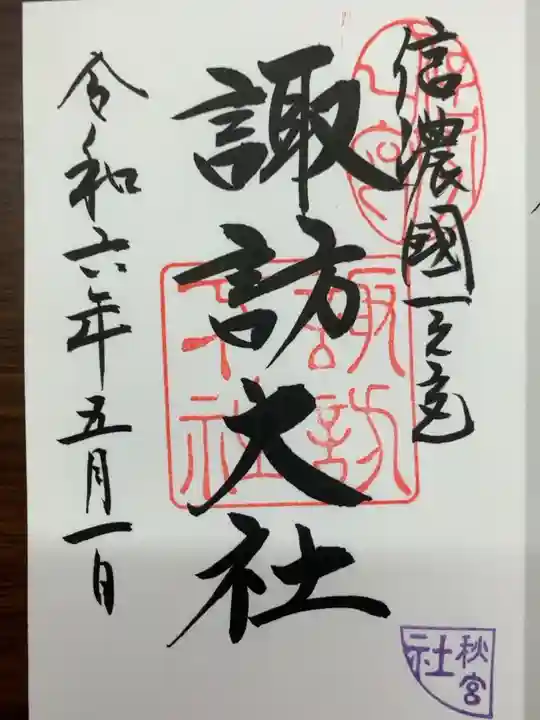 信濃國一之宮
諏訪大社
令和六年五月一日
諏訪
下社
秋宮
社